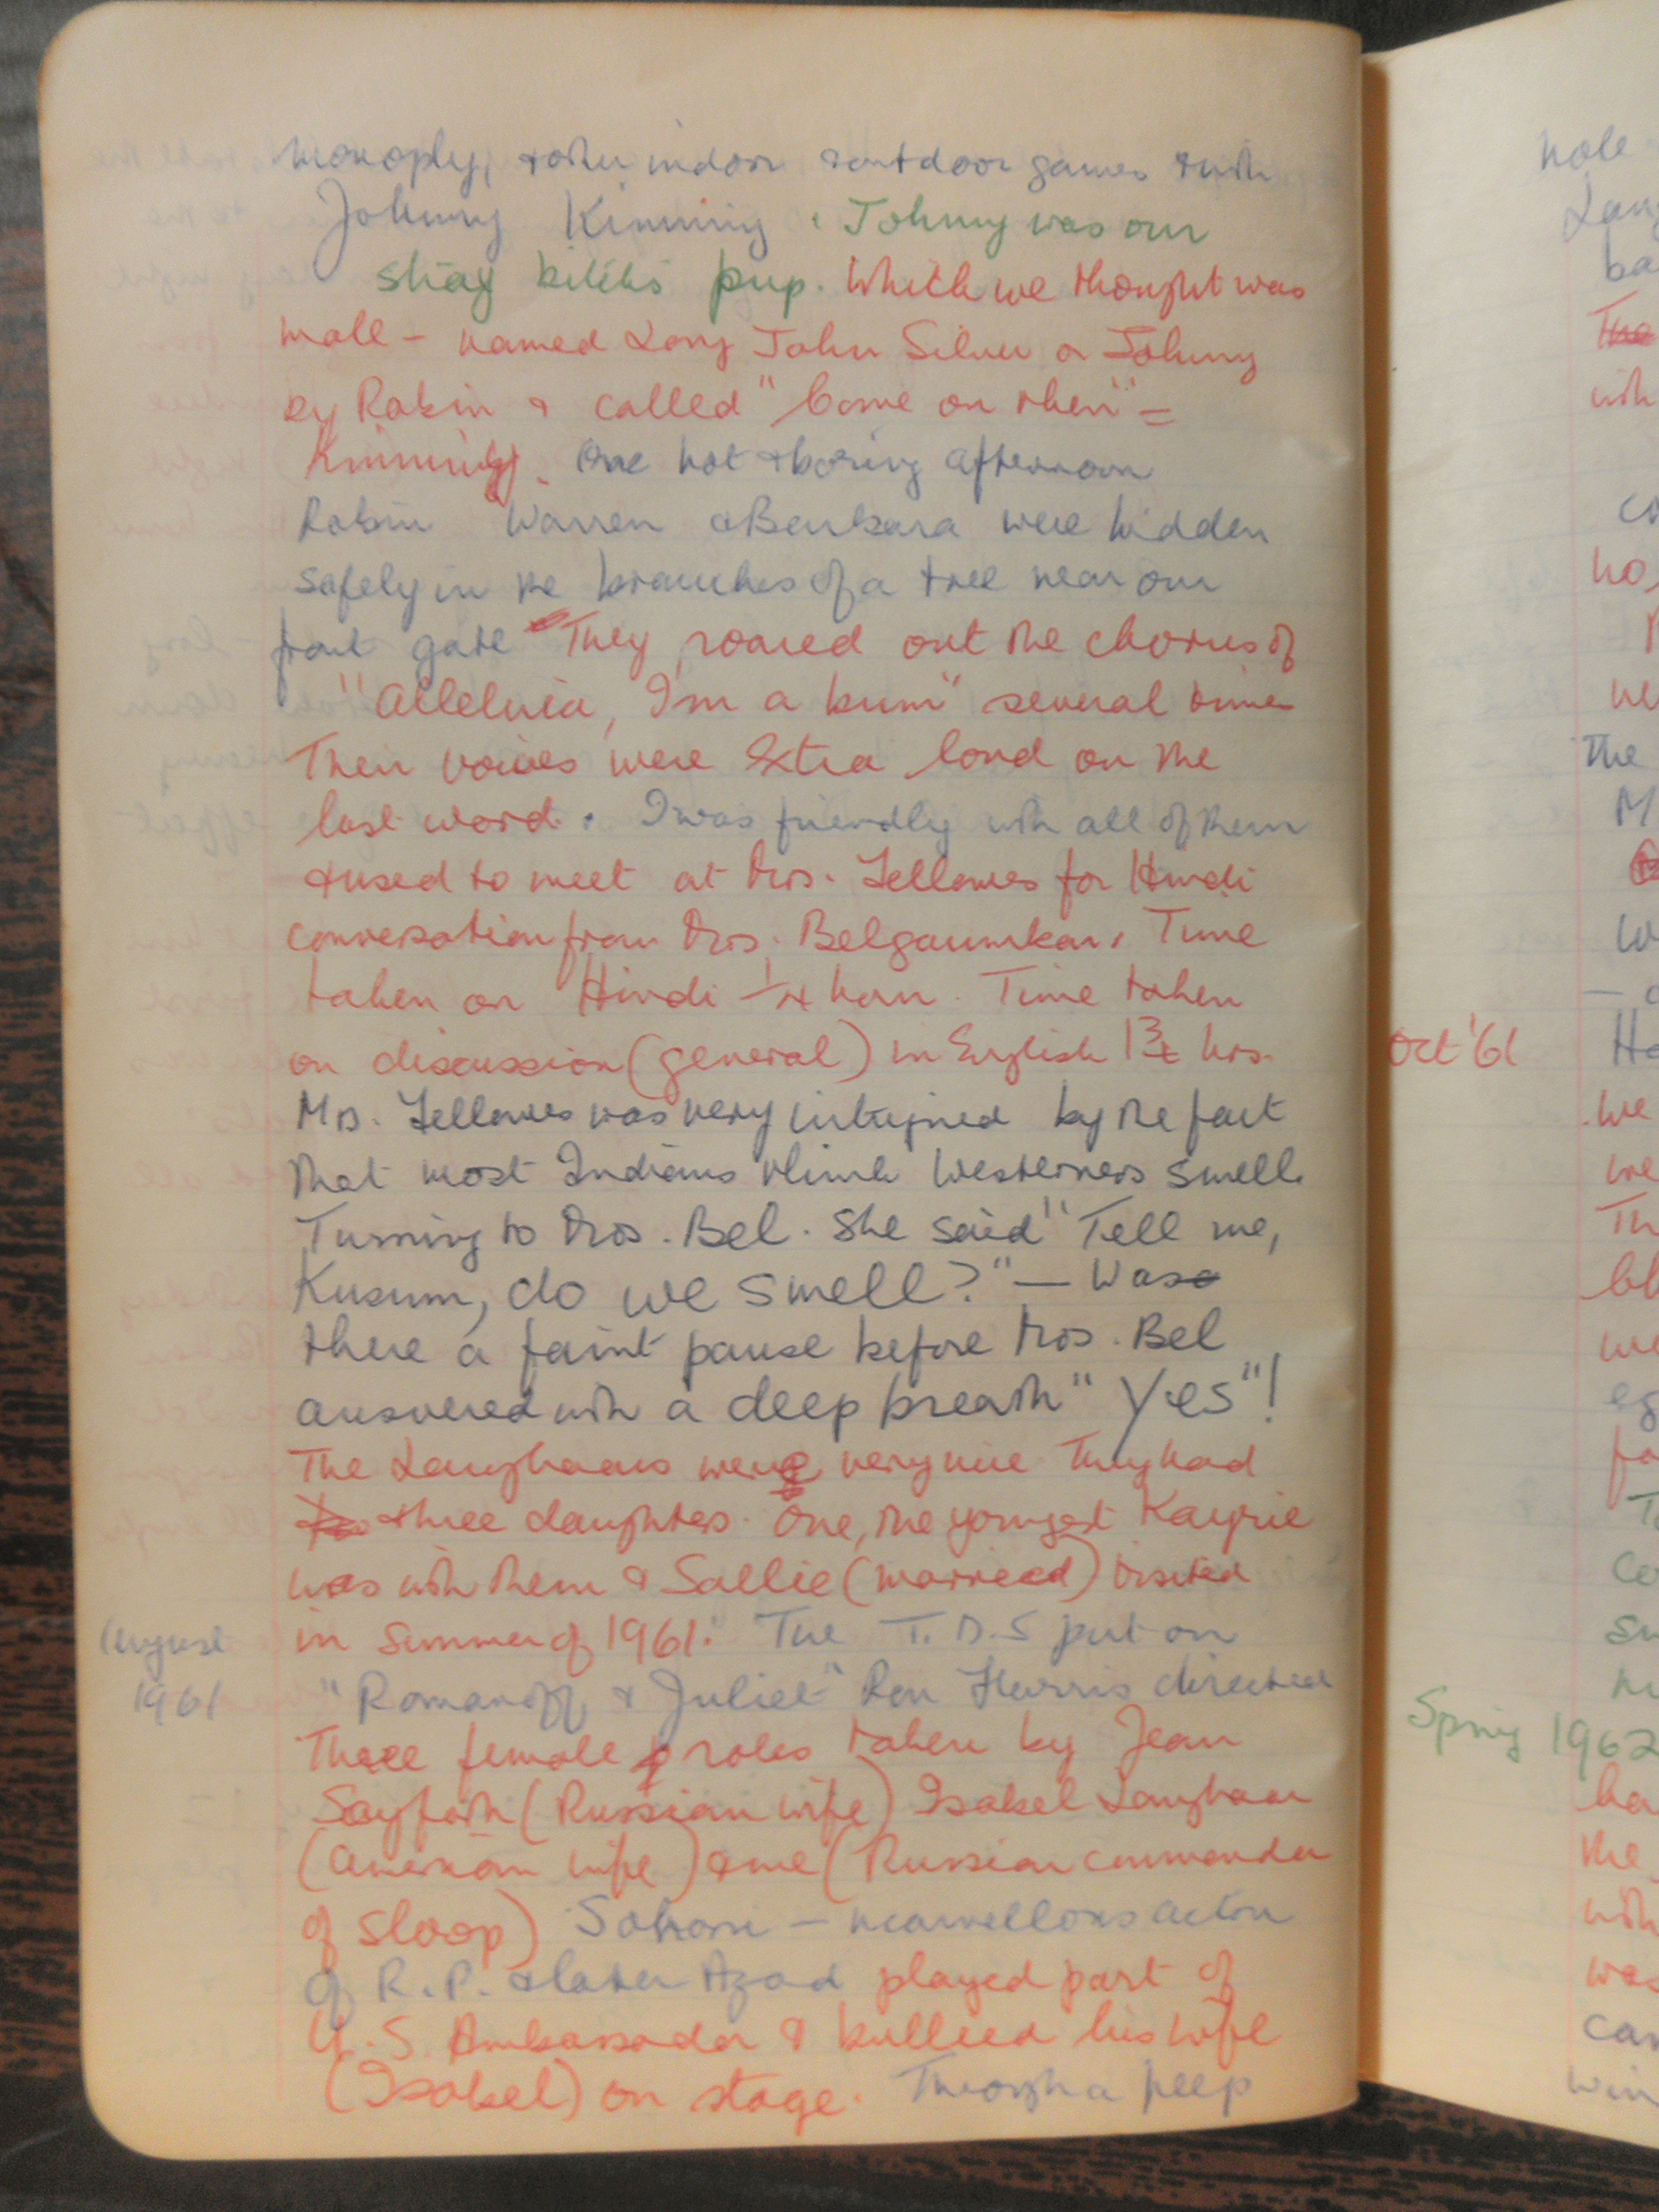 monoply, & other indoor & outdoor games & with
Johnny Kimming. Johnny was our
stray bitch's pup. Which we thought was
male – named Long John Silver or Johnny
by Robin & called "Come on then" =
Kimming. One hot & boring afternoon
Robin Warren & Barbara were hidden
safely in the branches of a tree near our
front gate They roared out the chorus of
"Alleluia, I'm a bum" several times
Their voices were extra loud on the
last word. I was friendly with all of them
& used to meet at Mrs. Fellowes for Hindi
conversation from Mrs. Belgaumkar. Time
taken on Hindi 1/4 hour. Time taken
on discussion (general) in English 1 3/4 hrs.
Mrs. Fellowes was very intrigued by the fact
that most Indians think Westerners smell.
Turning to Mrs. Bel. She said "Tell me,
Kusum, do we smell?" – Was
there a faint pause before Mrs. Bel
answered with a deep breath "Yes"!
The Langhaars were very nice They had
three daughters. One, the youngest
was with them & Sallie (married) visited
in Summer of 1961. The T.D.S put on
August
1961
"Romanoff & Juliet" Ron Harris directed
Three female roles taken by Jean
(Russian wife) Isabel Langhaar
(American wife) & me (Russian commander
of sloop) – marvellous actor
of R.P. & later Azad played part of
U.S. Ambassador & bullied his wife
(Isabel) on stage. Through a peep
hole
The
M
Oct '61
we
Th
we
Spring 1962
the
was